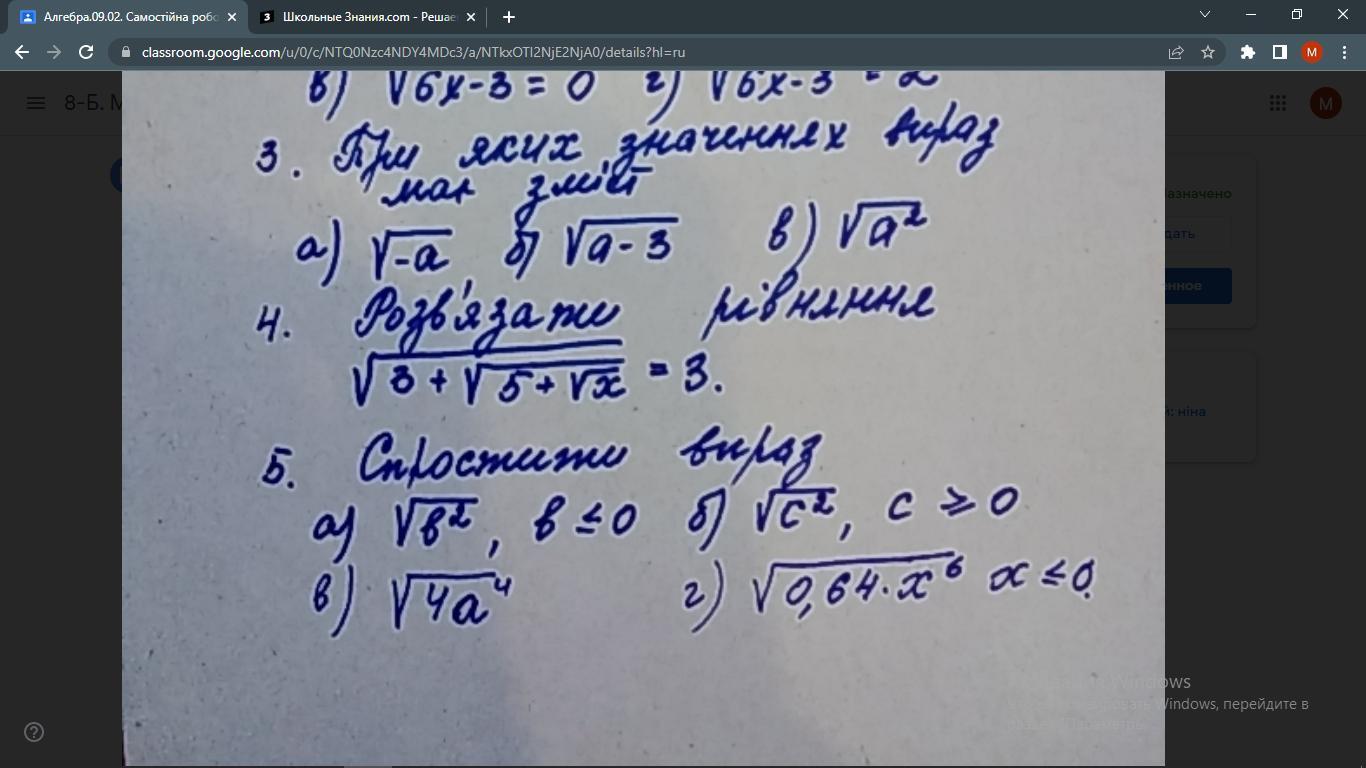 Алгебра.09.02. Самостійна робо
Школьные Знания.com - Решае
classroom.google.com/u/0/c/NTQ0Nzc4NDY4MDc3/a/NTkxOTI2NjE2NjA0/details?hl=ru
M
8-Б. М
M
в) √6x-3 = 0 г) √6x-3 = 2
3. При яких значеннях вираз
має зміст
а) √-a б) √a-3 в) √a²
4. Розв'язати рівняння
√3+√5+√x = 3.
5. Спростити вираз
а) √b², b ≤ 0 б) √c², c ≥ 0
в) √4a⁴ г) √0,64·x⁶ x ≤ 0.
азначено
дать
нное
й: ніна
Windows
Windows, перейдите в